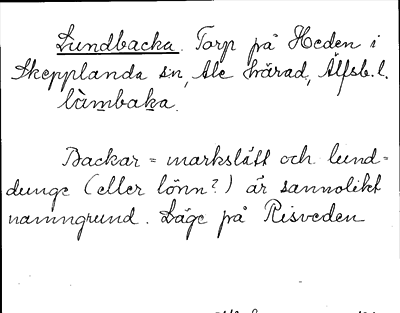 Lundbacka. Torp på Heden i
Skepplanda sn, Ale härad, Älfsb. l.
làmbaka.
Backar = markslätt och lund=
dunge (eller lönn?) är sannolikt
namngrund. Läge på Risveden